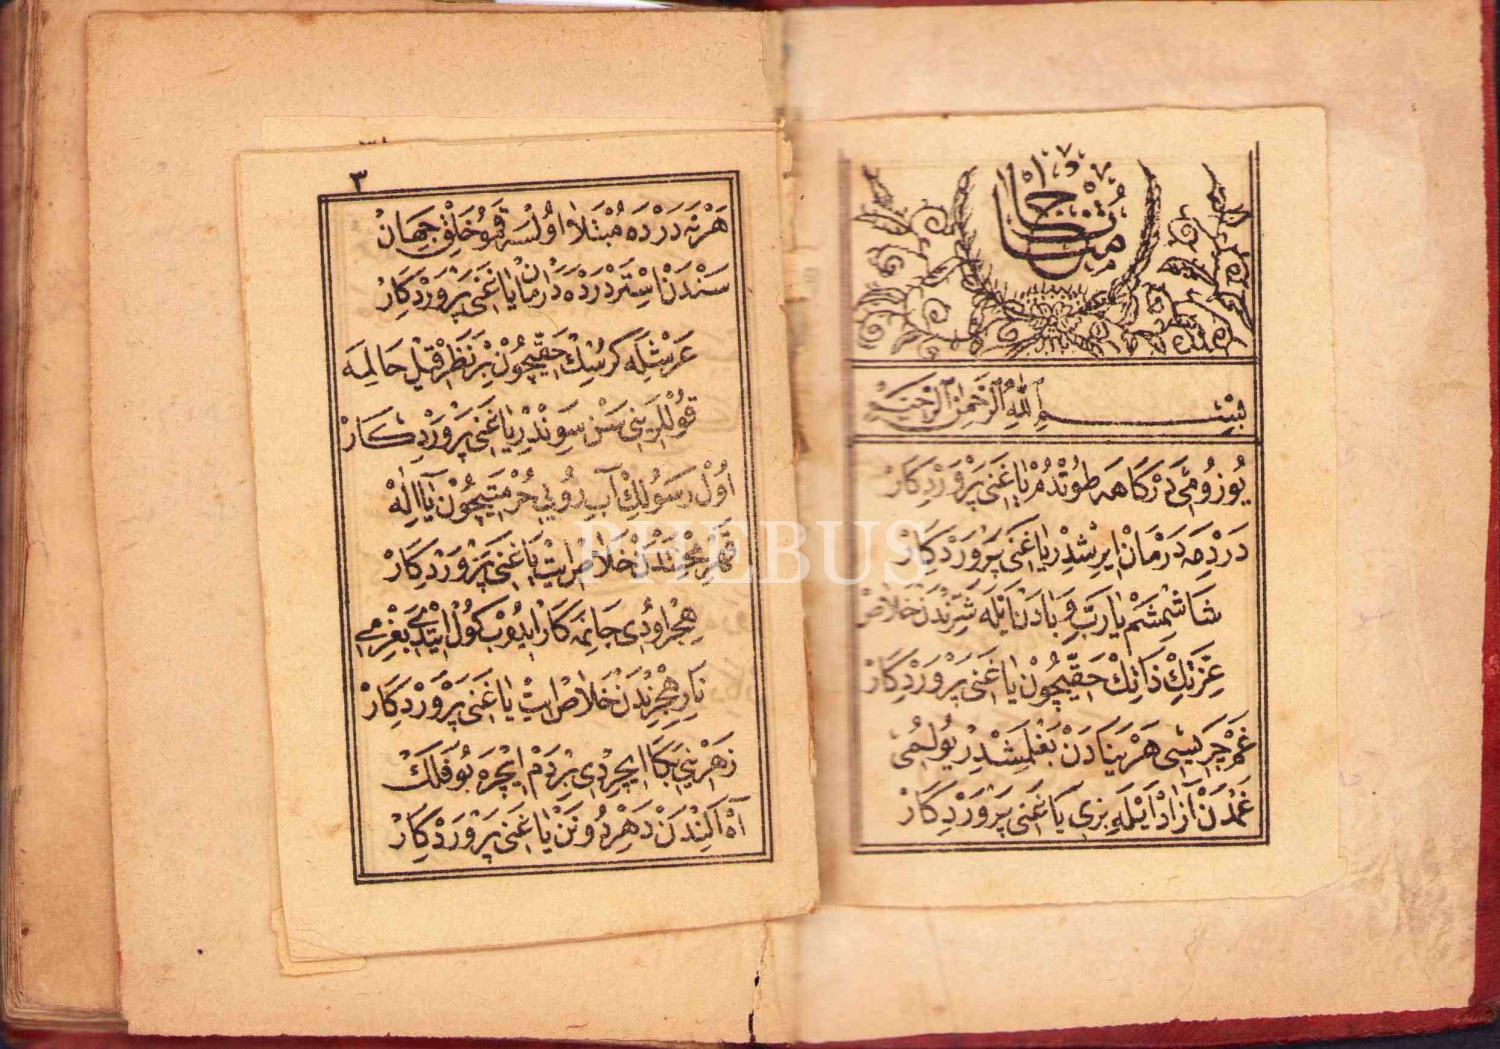 مناجات
بِسْمِ اللهِ الرَّحْمٰنِ الرَّحِيمِ
يُوزُومِى دَرْكَاهَه طُوتْدُمْ يَا غَنِى پَرْوَرْدِكَارْ
دَرْدِمَه دَرْمَانْ اِيرِشْدِرْ يَا غَنِى پَرْوَرْدِكَارْ
شَاشْمِشَمْ يَا رَبِّ وَبَادَنْ اَيْلَه شَرِّنْدَنْ خَلَاصْ
عِزَّتِكْ ذَاتِكْ حَقِّيچُونْ يَا غَنِى پَرْوَرْدِكَارْ
غَمْ چَرِيسِى هَرْ يَنَادَنْ بَغْلَمِشْدِرْ يُولُمِى
غَمْدَنْ آزَادْ اَيْلَه بِزِى يَا غَنِى پَرْوَرْدِكَارْ
٣
هَرْ نَه دَرْدَه مُبْتَلَا اُولْسَه قَمُو خَلْقِ جِهَانْ
سَنْدَنْ اِسْتَرْ دَرْدَه دَرْمَانْ يَا غَنِى پَرْوَرْدِكَارْ
عَرْشِلَه كُرْسِكْ حَقِّيچُونْ بِرْ نَظَرْ قِيلْ حَالِمَه
قُولْلَرِينِى سَنْ سَوِنْدِرْ يَا غَنِى پَرْوَرْدِكَارْ
اُولْ رَسُولِكْ آبِ رُويِى حُرْمَتِيچُونْ يَا اِلٰهْ
قَهْرِ هِجْرِنْدَنْ خَلَاصْ اِيتْ يَا غَنِى پَرْوَرْدِكَارْ
هِجْرْ اُودِى جَانِمَه كَارْ اِيدُوبْ كُولْ اِيتْدِى بَغْرِمِى
نَارِ هِجْرِنْدَنْ خَلَاصْ اِيتْ يَا غَنِى پَرْوَرْدِكَارْ
زَهْرِينِى بَكَا اِيچِرْدِى بِرْ دَمْ اِيچْرَه بُو فَلَكْ
آهْ اَلِنْدَنْ دَهْرِ دُونَنْ يَا غَنِى پَرْوَرْدِكَارْ
PHEBUS